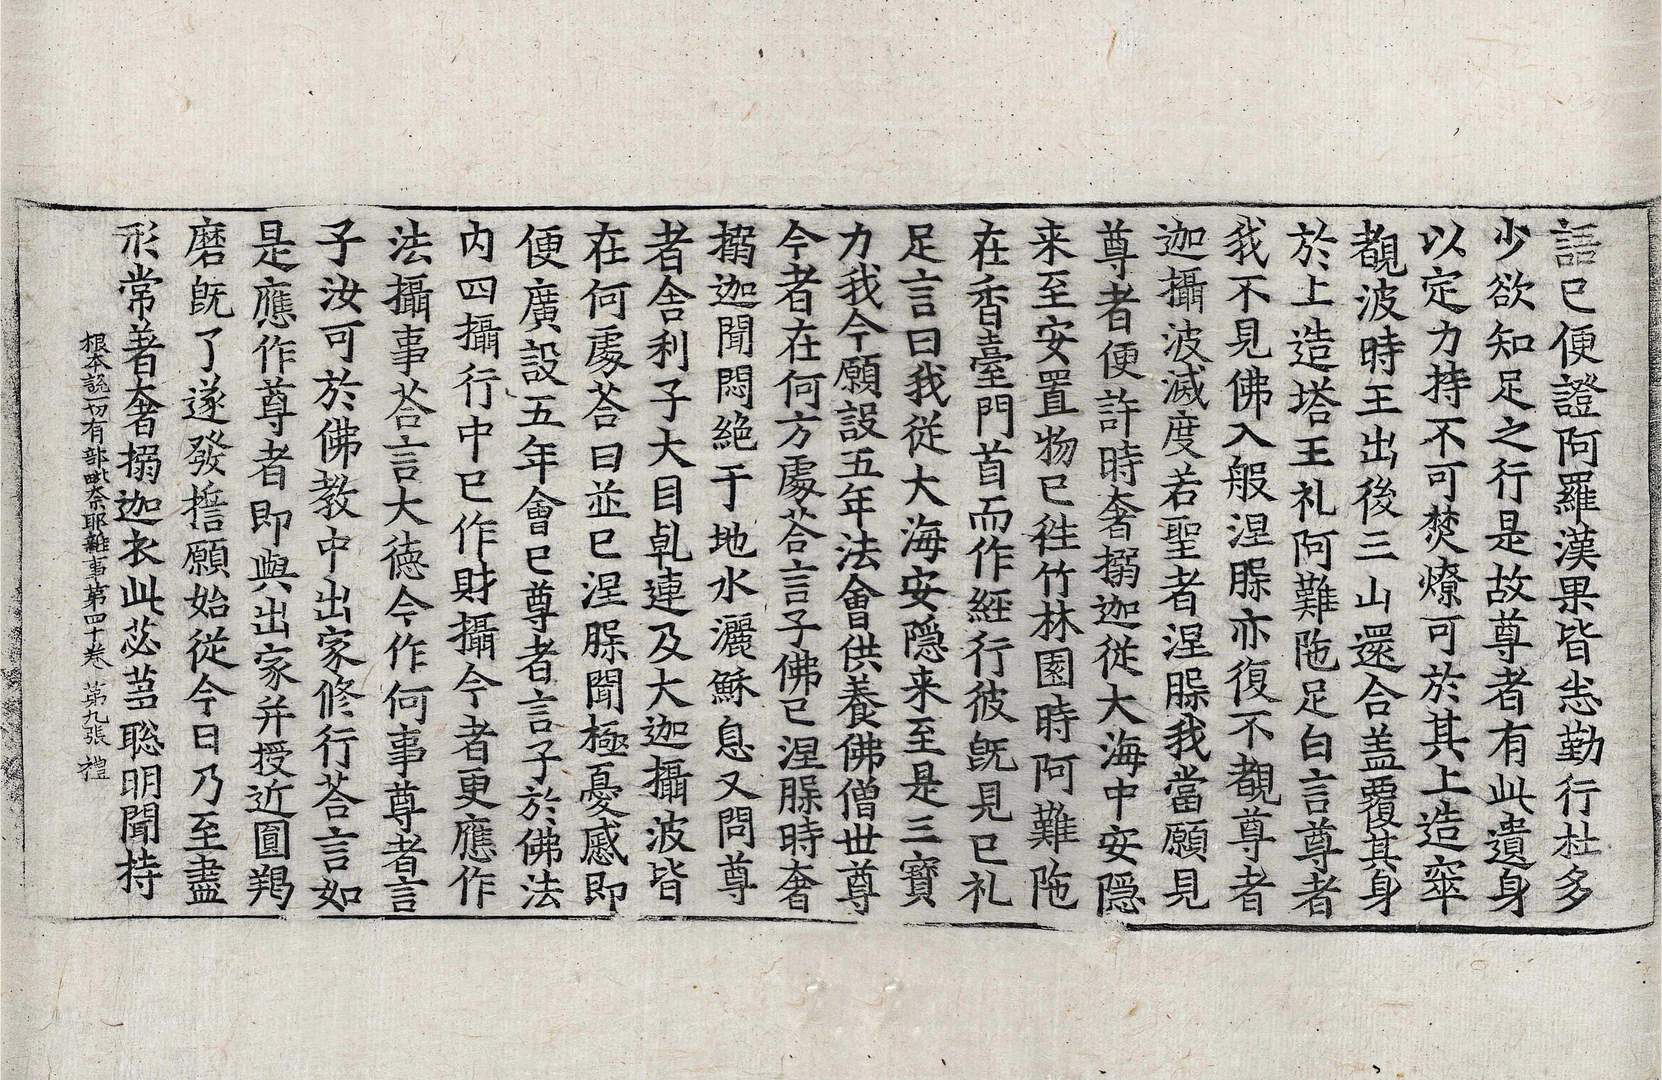 語已便證阿羅漢果皆悉勤行杜多
少欲知足之行是故尊者有此遺身
以定力持不可焚燎可於其上造窣
覩波時王出後三山還合盖覆其身
於上造塔王礼阿難陁足白言尊者
我不見佛入般涅槃亦復不覩尊者
迦攝波滅度若聖者涅槃我當願見
尊者便許時奢搦迦從大海中安隱
来至安置物已徃竹林園時阿難陁
在香臺門首而作經行彼旣見已礼
足言曰我從大海安隱来至是三寶
力我今願設五年法會供養佛僧世尊
今者在何方處荅言子佛已涅槃時奢
搦迦聞悶絶于地水灑穌息又問尊
者舍利子大目乹連及大迦攝波皆
在何處荅曰並已涅槃聞極憂慼即
便廣設五年會已尊者言子於佛法
内四攝行中已作財攝今者更應作
法攝事荅言大德今作何事尊者言
子汝可於佛教中出家修行荅言如
是應作尊者即與出家并授近圓羯
磨旣了遂發誓願始從今日乃至盡
形常著奢搦迦衣此苾蒭聡明聞持
根本說一切有部毗奈耶雜事第四十卷 第九張 禮